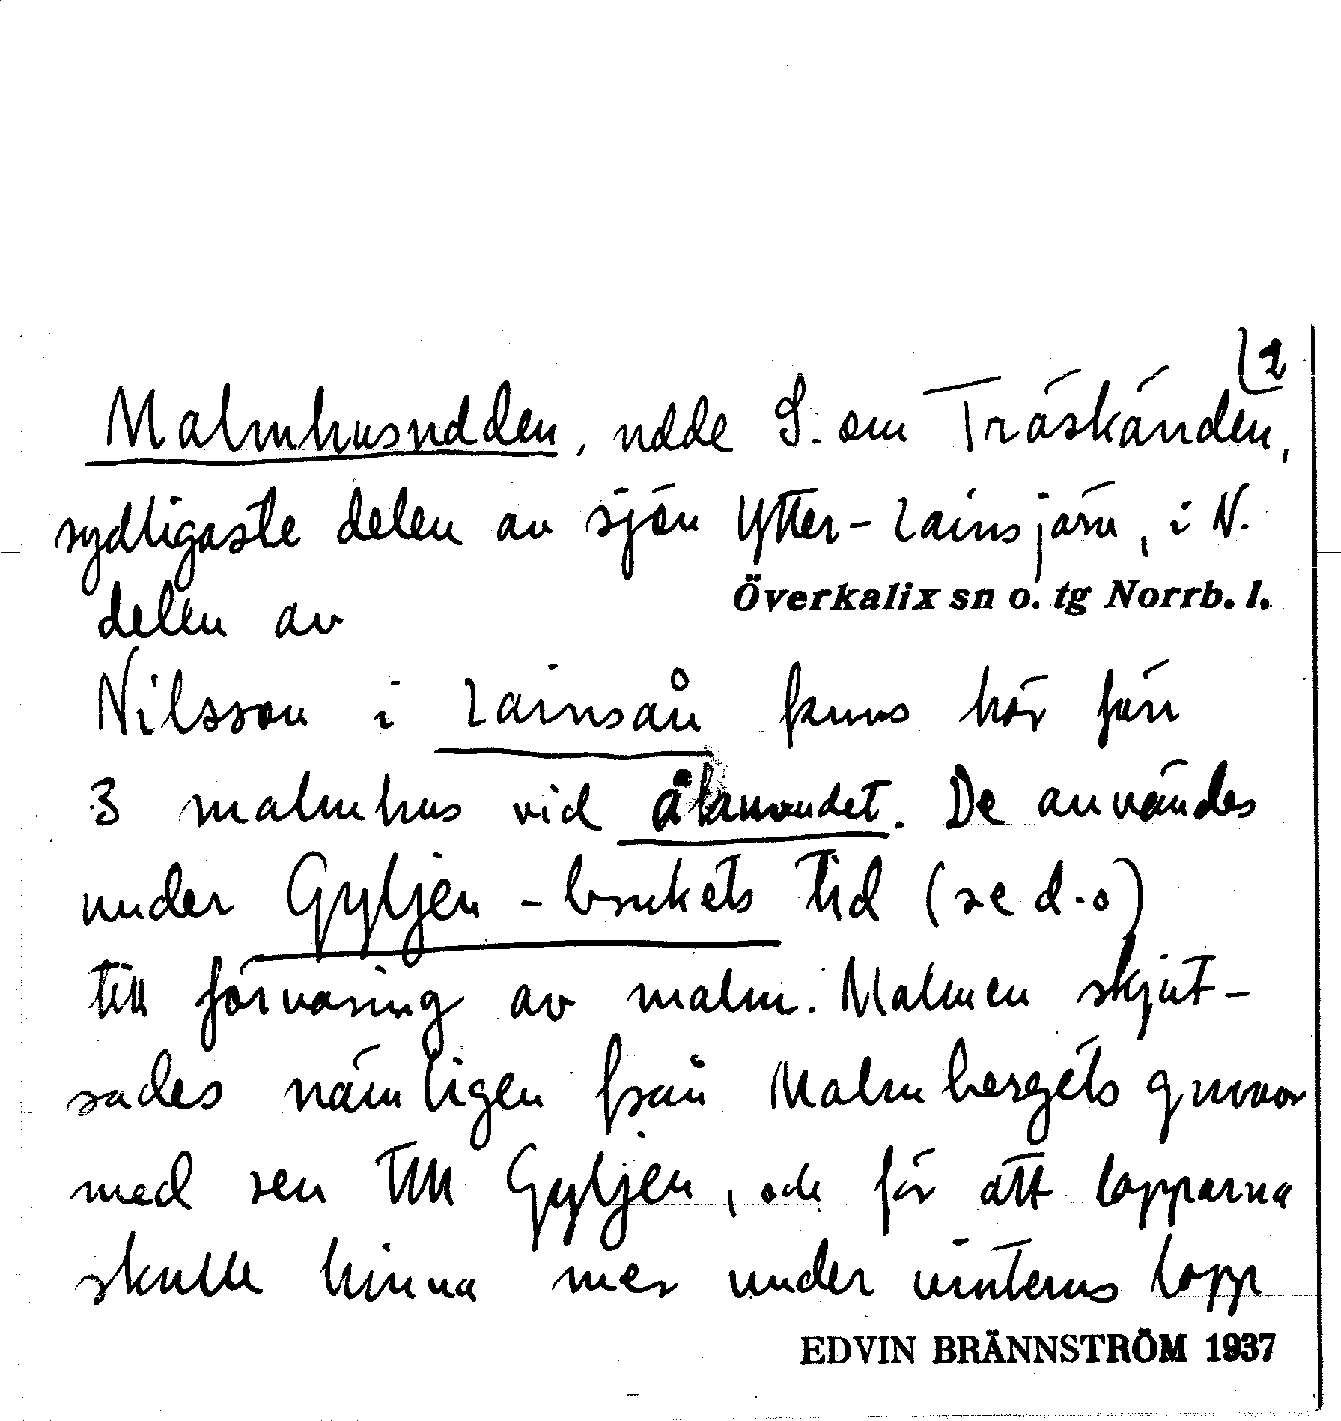 2
Malmhusudden, udde S. om Träskänden,
sydligaste delen av sjön Ytter-Lainsjärv, i N.
delen av Överkalix sn o. tg Norrb. l.
Nilsson i Lainsån funns här förr
3 malmhus vid åkanodet. De användes
under Gyljen-brukets tid (se d.o)
till förvaring av malm. Malmen skjut-
sades nämligen från Malmbergets gruvor
med ren till Gyljen, och för att lapparna
skulle hinna mer under vinterns lopp
EDVIN BRÄNNSTRÖM 1937